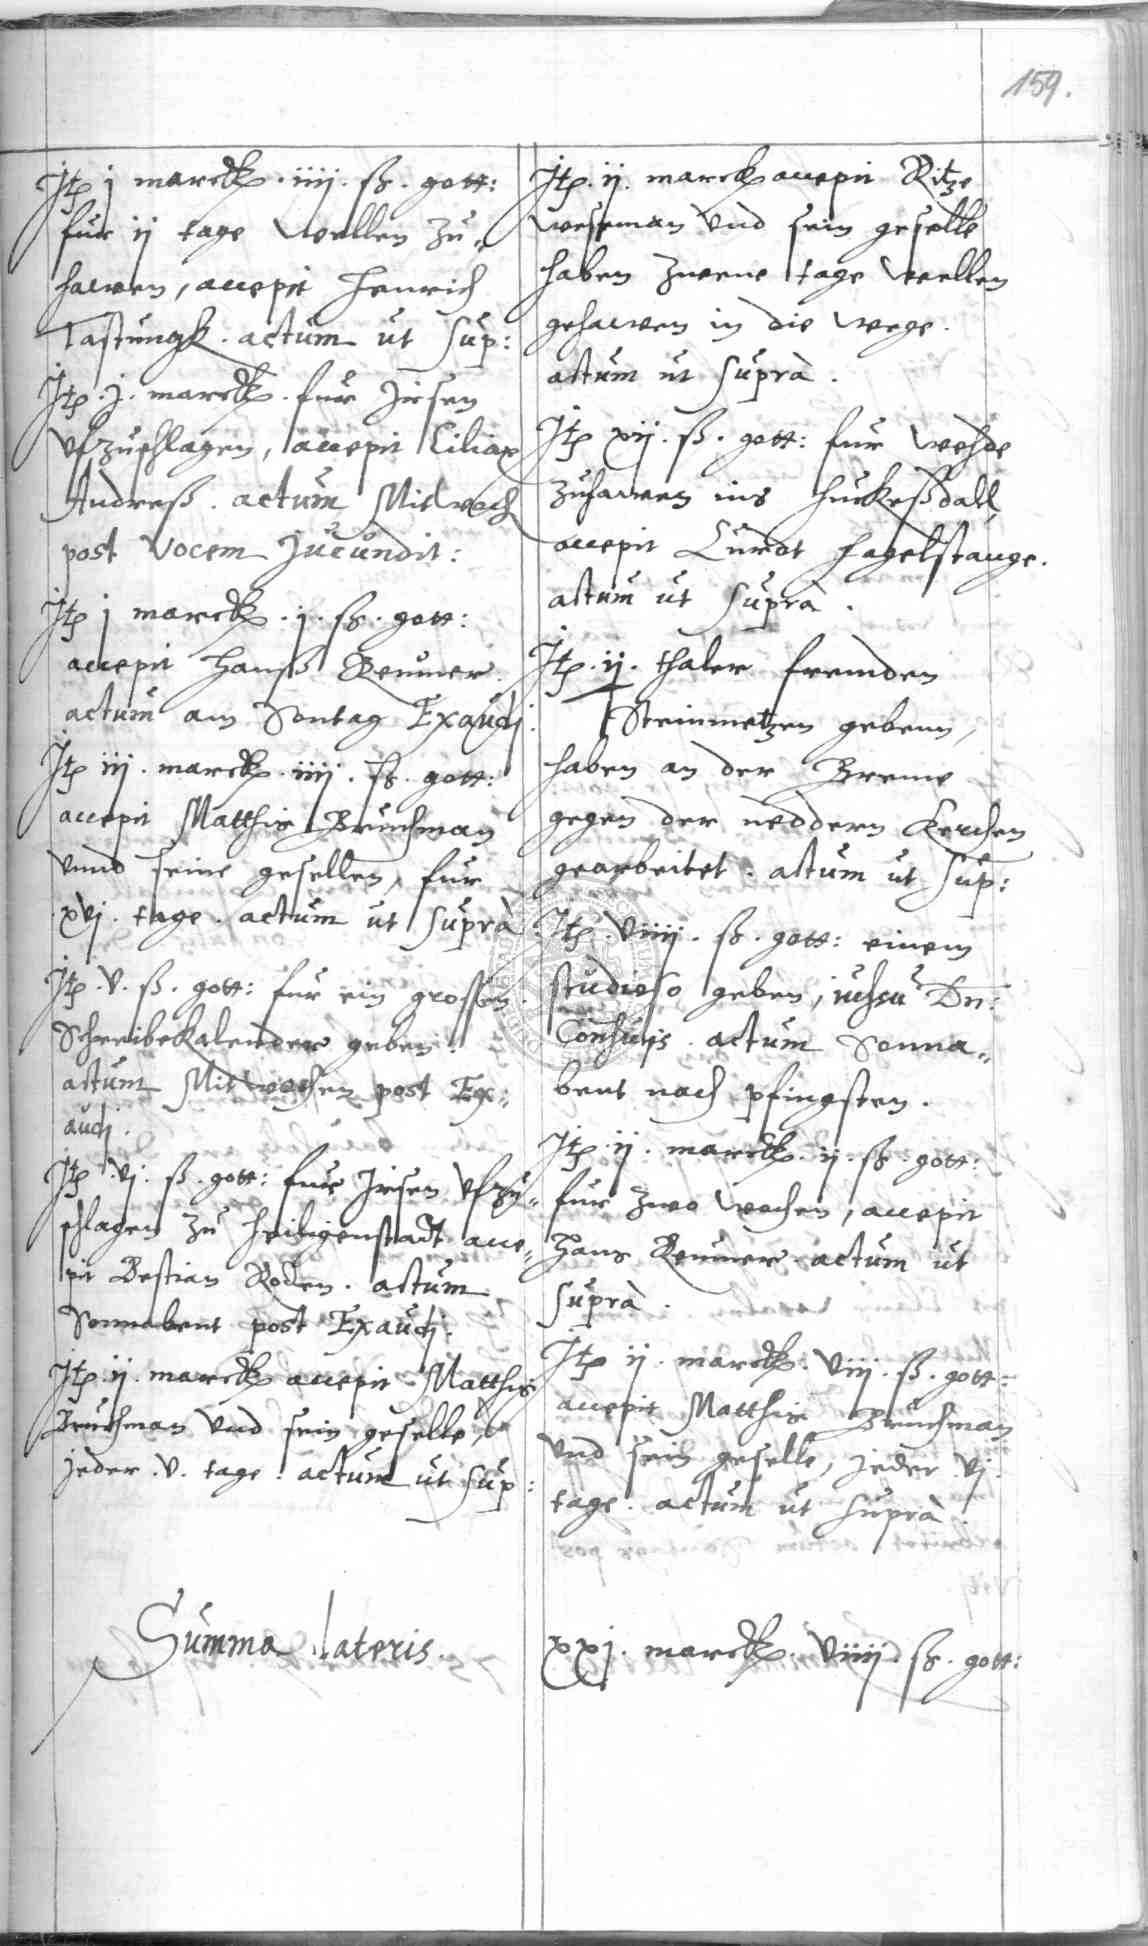 159.
Jtem j marck. iiij. ß. gott:
für ij tage wellen zu„
hawen, accepit Henrich
Tastungk. actum ut sup:
Jtem. j. marck. für Jrsen
vfzuschlagen, accepit Ciliax
Andreß. actum Mitwoch
post Vocem Jucundit:
Jtem j marck. j. ß. gott:
accepit Hanß Reumer.
actum am Sontag Exaudj:
Jtem iij. marck. iiij. ß. gott:
accepit Matthis Bruchman
vnnd seine gesellen, für
xvj. tage. actum ut suprà
Jtem. v. ß. gott: für ein grossen
Schreibekalender geben.
actum Mitwochen post Ex„
audj.
Jtem. vj. ß. gott: für Jrsen vfzu„
schlagen zu Heiligenstadt acce„
pit Bestian Roden. actum
Sonnabent post Exaudj.
Jtem. ij. marck accepit Matthis
Bruchman vnd sein geselle,
jeder. v. tage. actum ut sup:
Jtem. ij. marck accepit Ritze
weseman vnd sein geselle
haben zwene tage wellen
gehawen in die wege.
actum ut suprà.
Jtem xij. ß. gott: für wehde
zuhawen ins Huckeßdall,
accepit Curdt Hagelstange.
actum ut suprà.
Jtem. ij. thaler fremden
Steinmetzen gebenn,
haben an der Breme
gegen der neddern Kerchen
gearbeitet. actum ut sup:
Jtem. viiij. ß. gott: einem
studioso geben, iussu Dn:
Consulis. actum Sonna„
bent nach pfingsten.
Jtem. ij. marck. ij. ß. gott:
für zwo wochen, accepit
Hans Reumer. actum ut
suprà.
Jtem ij. marck. viij. ß. gott:
accepit Matthis Bruchman
vnd sein geselle, jeder. vj.
tage. actum ut suprà.
Summa lateris.
xxj. marck. viiij. ß. gott: